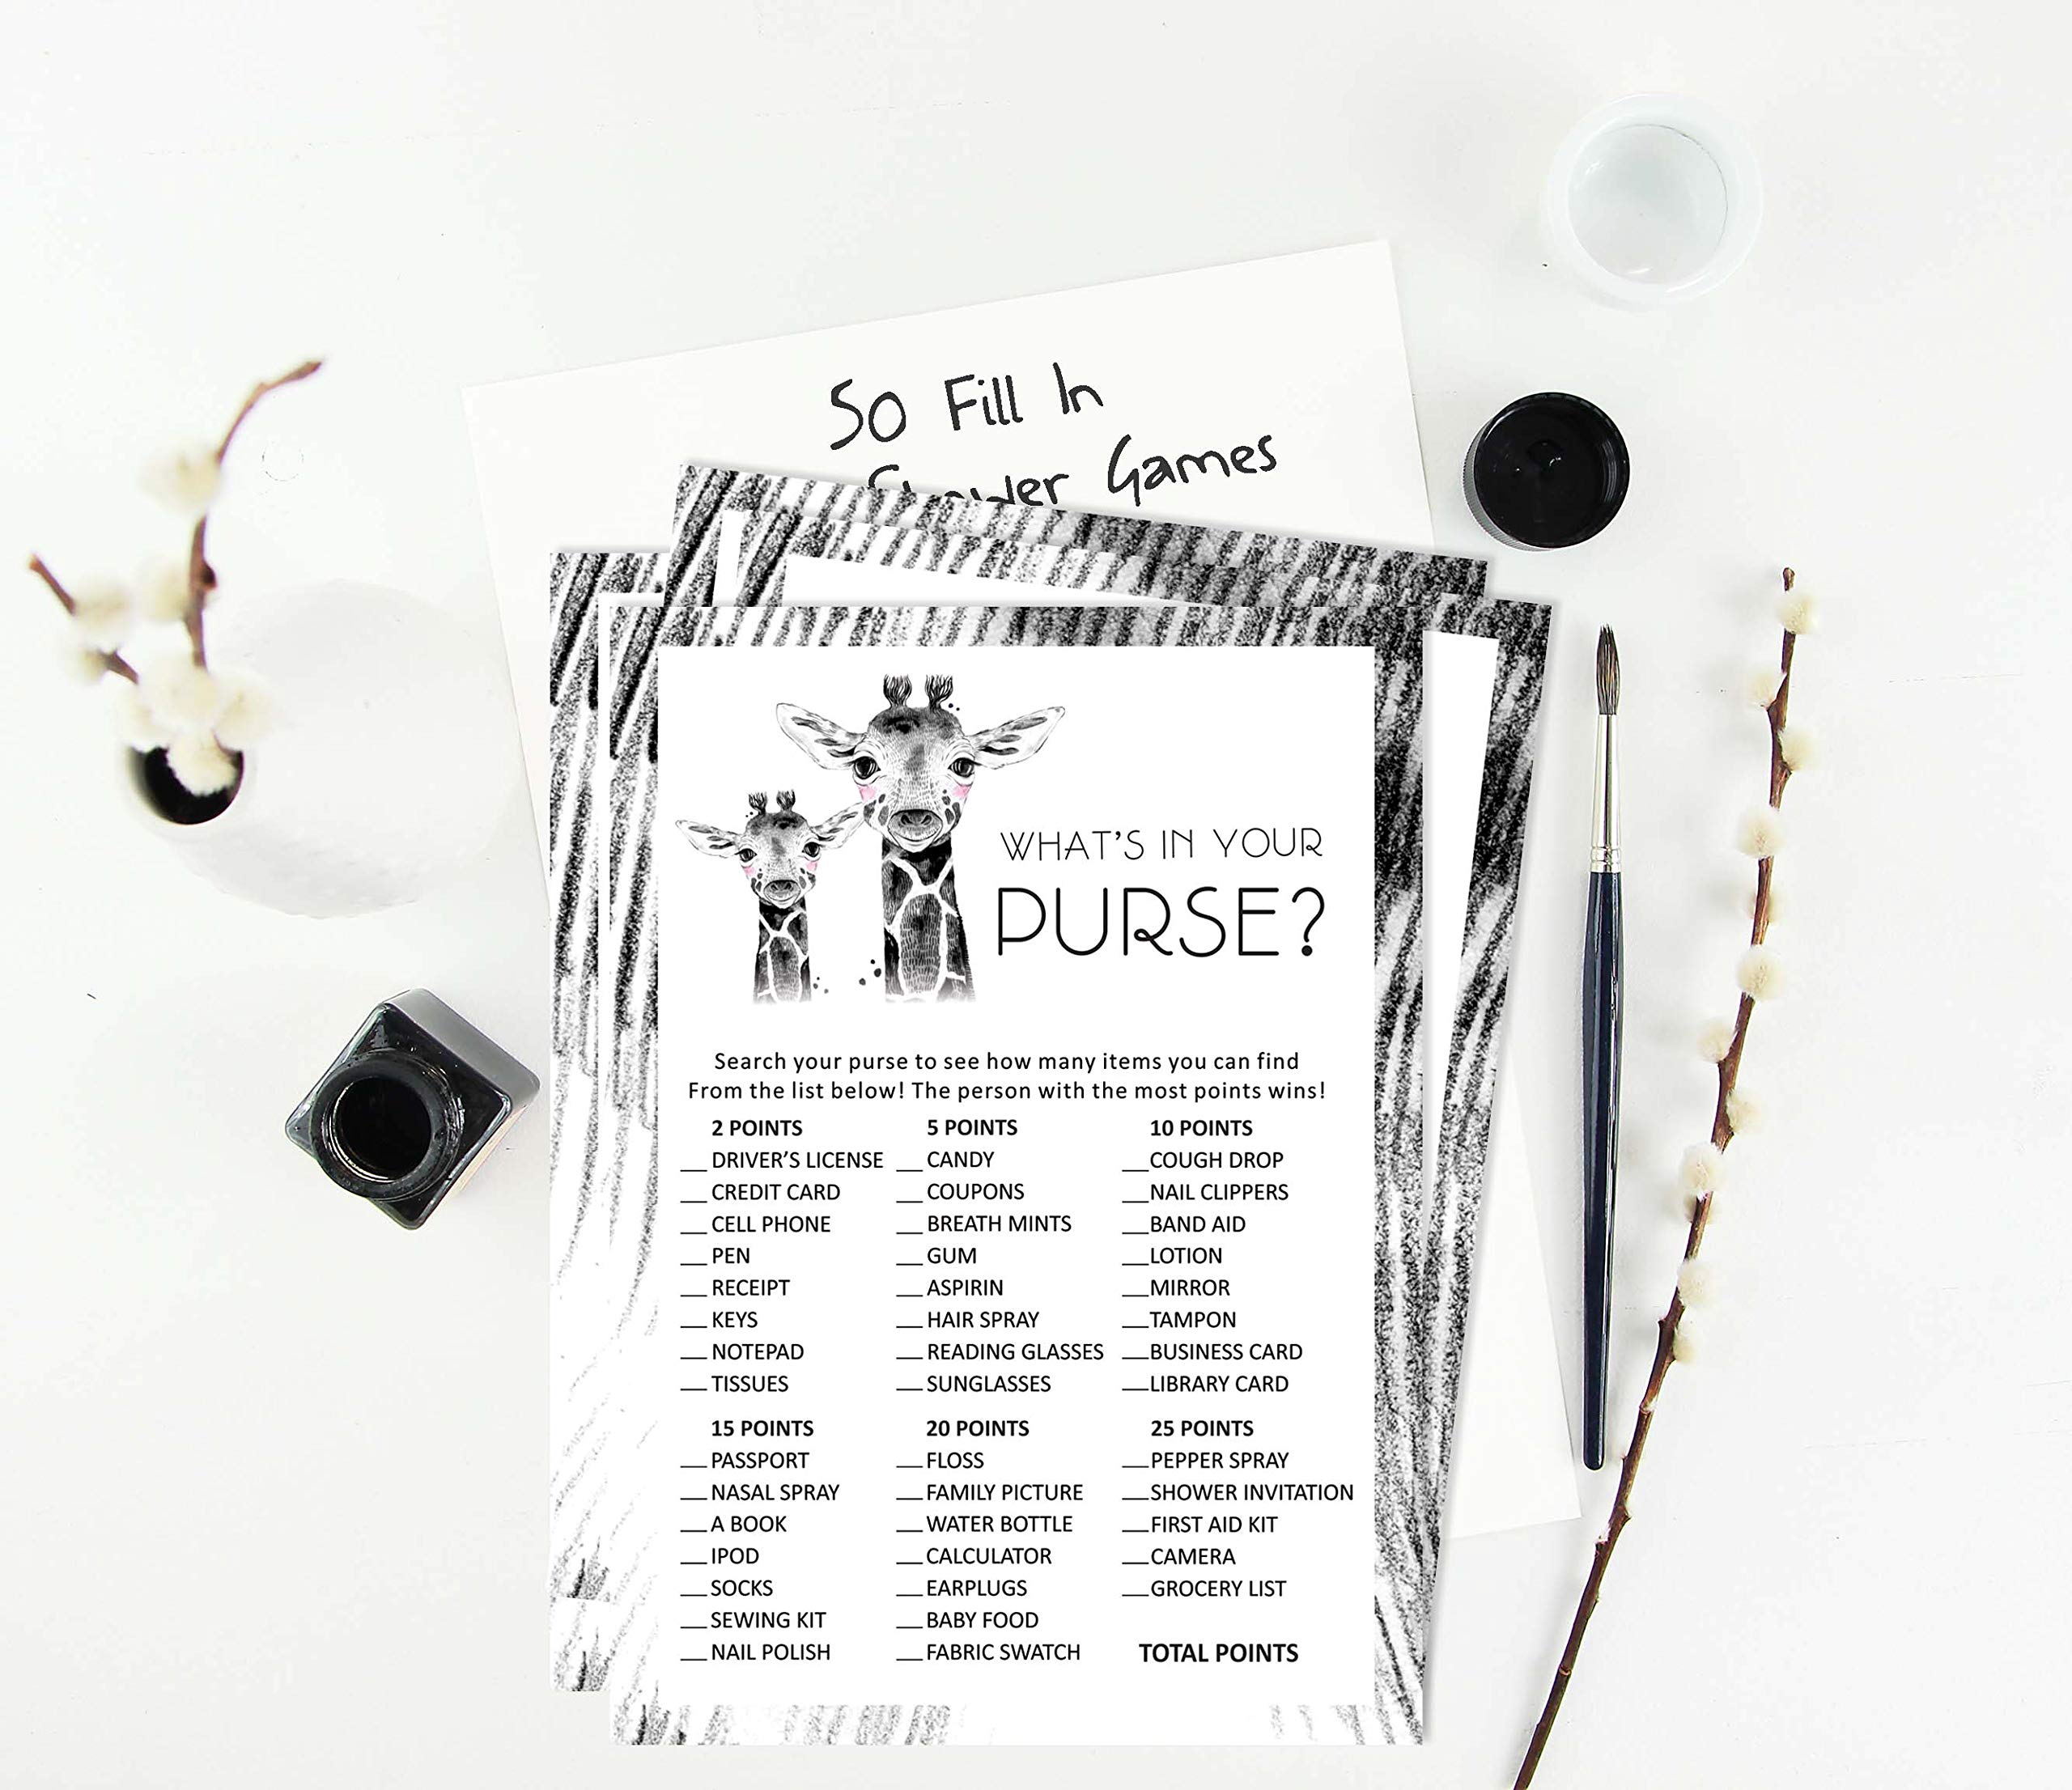 50 Fill In
Shower Games
WHAT'S IN YOUR
PURSE?
Search your purse to see how many items you can find
From the list below! The person with the most points wins!
2 POINTS
__ DRIVER'S LICENSE
__ CREDIT CARD
__ CELL PHONE
__ PEN
__ RECEIPT
__ KEYS
__ NOTEPAD
__ TISSUES
5 POINTS
__ CANDY
__ COUPONS
__ BREATH MINTS
__ GUM
__ ASPIRIN
__ HAIR SPRAY
__ READING GLASSES
__ SUNGLASSES
10 POINTS
__ COUGH DROP
__ NAIL CLIPPERS
__ BAND AID
__ LOTION
__ MIRROR
__ TAMPON
__ BUSINESS CARD
__ LIBRARY CARD
15 POINTS
__ PASSPORT
__ NASAL SPRAY
__ A BOOK
__ IPOD
__ SOCKS
__ SEWING KIT
__ NAIL POLISH
20 POINTS
__ FLOSS
__ FAMILY PICTURE
__ WATER BOTTLE
__ CALCULATOR
__ EARPLUGS
__ BABY FOOD
__ FABRIC SWATCH
25 POINTS
__ PEPPER SPRAY
__ SHOWER INVITATION
__ FIRST AID KIT
__ CAMERA
__ GROCERY LIST
TOTAL POINTS